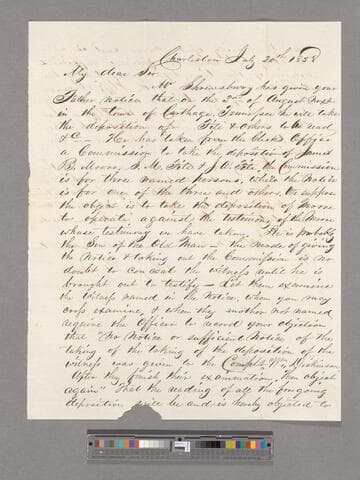 Charleston July 20th 1858
My dear Sir
Mr Shrewsbury has given your
Father Notice that on the 2nd of August next
in the town of Carthage Tennessee he will take
the deposition of Fite & others to be read
&C— He has taken from the Clerks Office
a Commission to take the deposition of James
B. Moore, S. M. Fite & J. A. Fite, the Commission
is for three named persons, while the Notice
is for one of the three and others. We suppose
the object is to take the deposition of Moore
to operate against the testimony of the Moore
whose testimony we have taken. He is probably
the Son of the Old Man— the mode of giving
the Notice & taking out the Commission is no
doubt to conceal the witness until he is
brought out to testify— Let them examine
the witness named in the Notice, whom you may
cross examine, & when they another not named
require the Officer to record your objection
that "No Notice or sufficient Notice of the
taking of the taking of the deposition of the
witness was given to the Complt. Wm. Dickinson,
After they finish their examination, then object
again" That the reading of all the foregoing
deposition will be and is hereby objected to